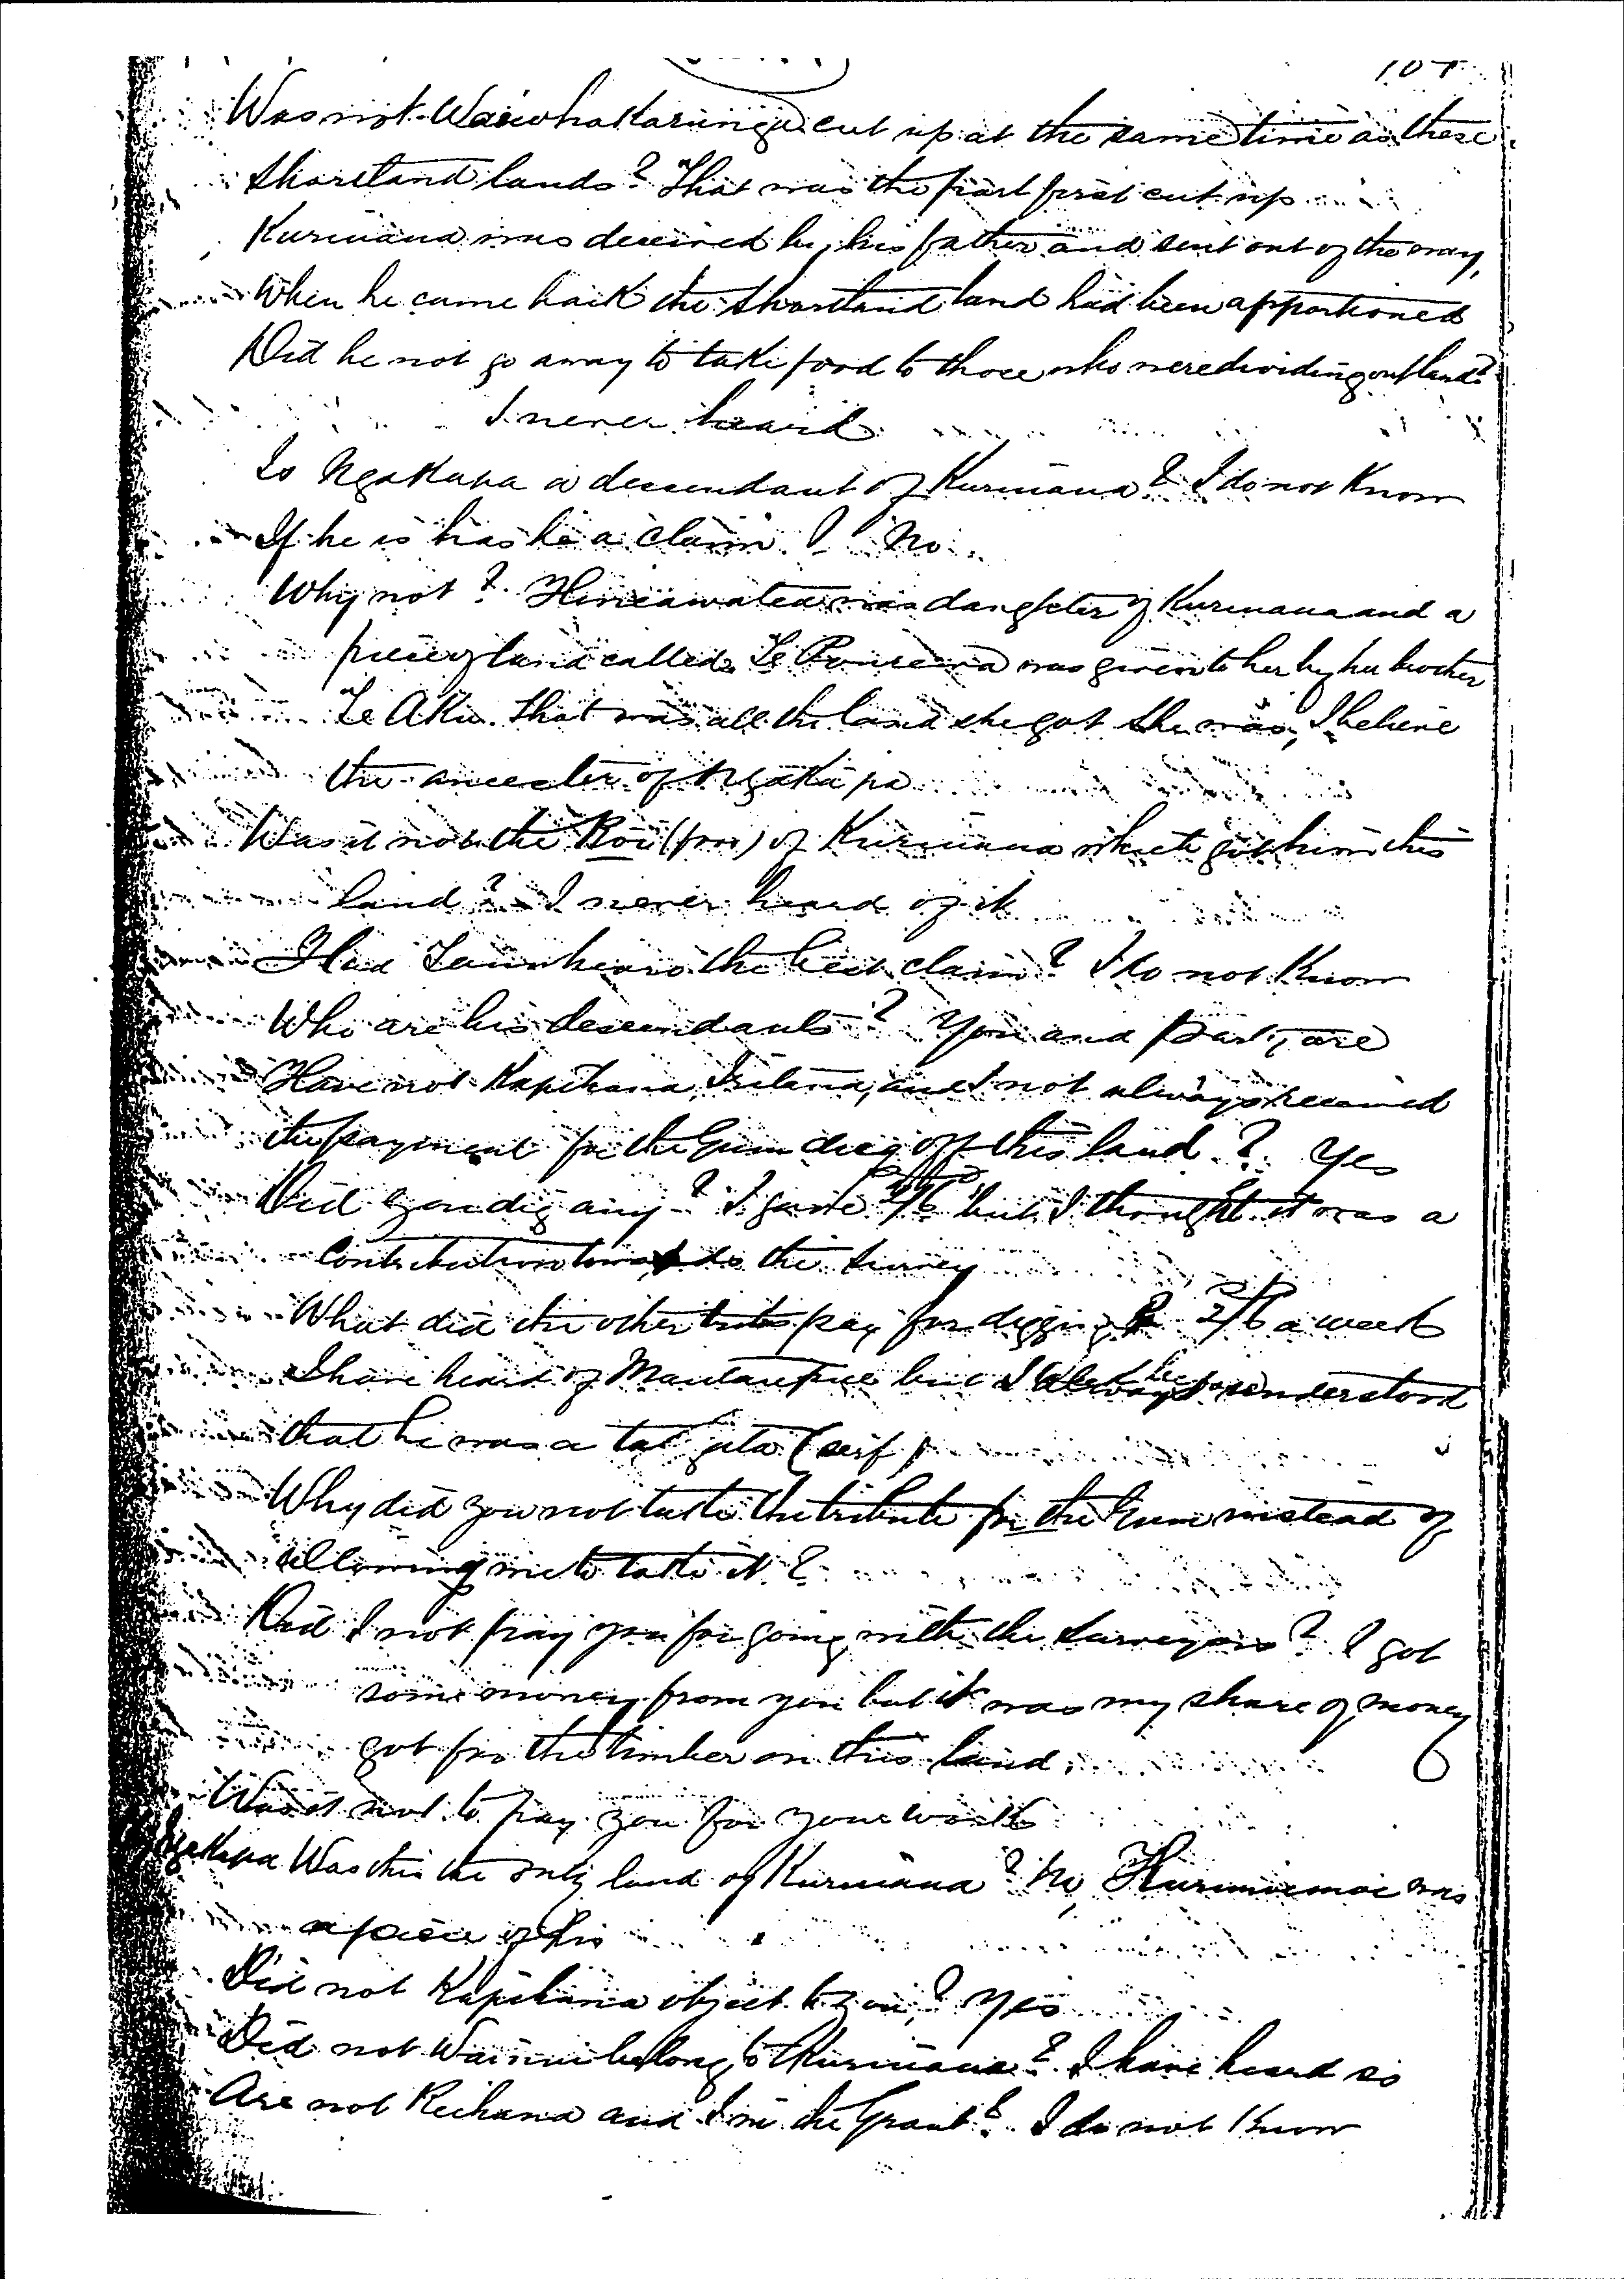 107
Was not Waiwhakarunga cut up at the same time as these
Shortland lands? That was the part first cut up
Kuriuaua was deceived by his father and sent out of the way,
When he came back the Shortland land had been apportioned
Did he not go away to take food to those who were dividing out land?
I never heard
Is Ngakapa a descendant of Kuriuaua? I do not know
If he is has he a claim? No
Why not? Hineawatea was daughter of Kuriuaua and a
piece of land called Te was given to her by her brother
Te Aku. That was all the land she got She was, I believe
the ancestor of Ngakapa
Was it not the Roi (fern) of Kuriuaua which got him this
land? I never heard of it
Had the best claim? I do not know
Who are his descendants? You and party are
Have not Kapihana, and I not always received
the payment for the Gum dug off this land? Yes
Did you dig any? I gave 2/6 but I thought it was a
Contribution towards the survey
What did the other pay for digging? 2/6 a week
I have heard of but I always understood
that he was a (serf)
Why did you not take the tribute for the Gum instead of
allowing me to take it?
Did I not pay you for going with the Surveyors? I got
some money from you but it was my share of money
got for the timber on this land.
Was it not to pay you for your work
Ngakapa Was this the only land of Kuriuaua? No, was
a piece of his
Did not Kapihana object to you? Yes
Did not Wainui belong to Kuriuaua? I have heard so
Are not Reihana and I in the Grant? I do not know